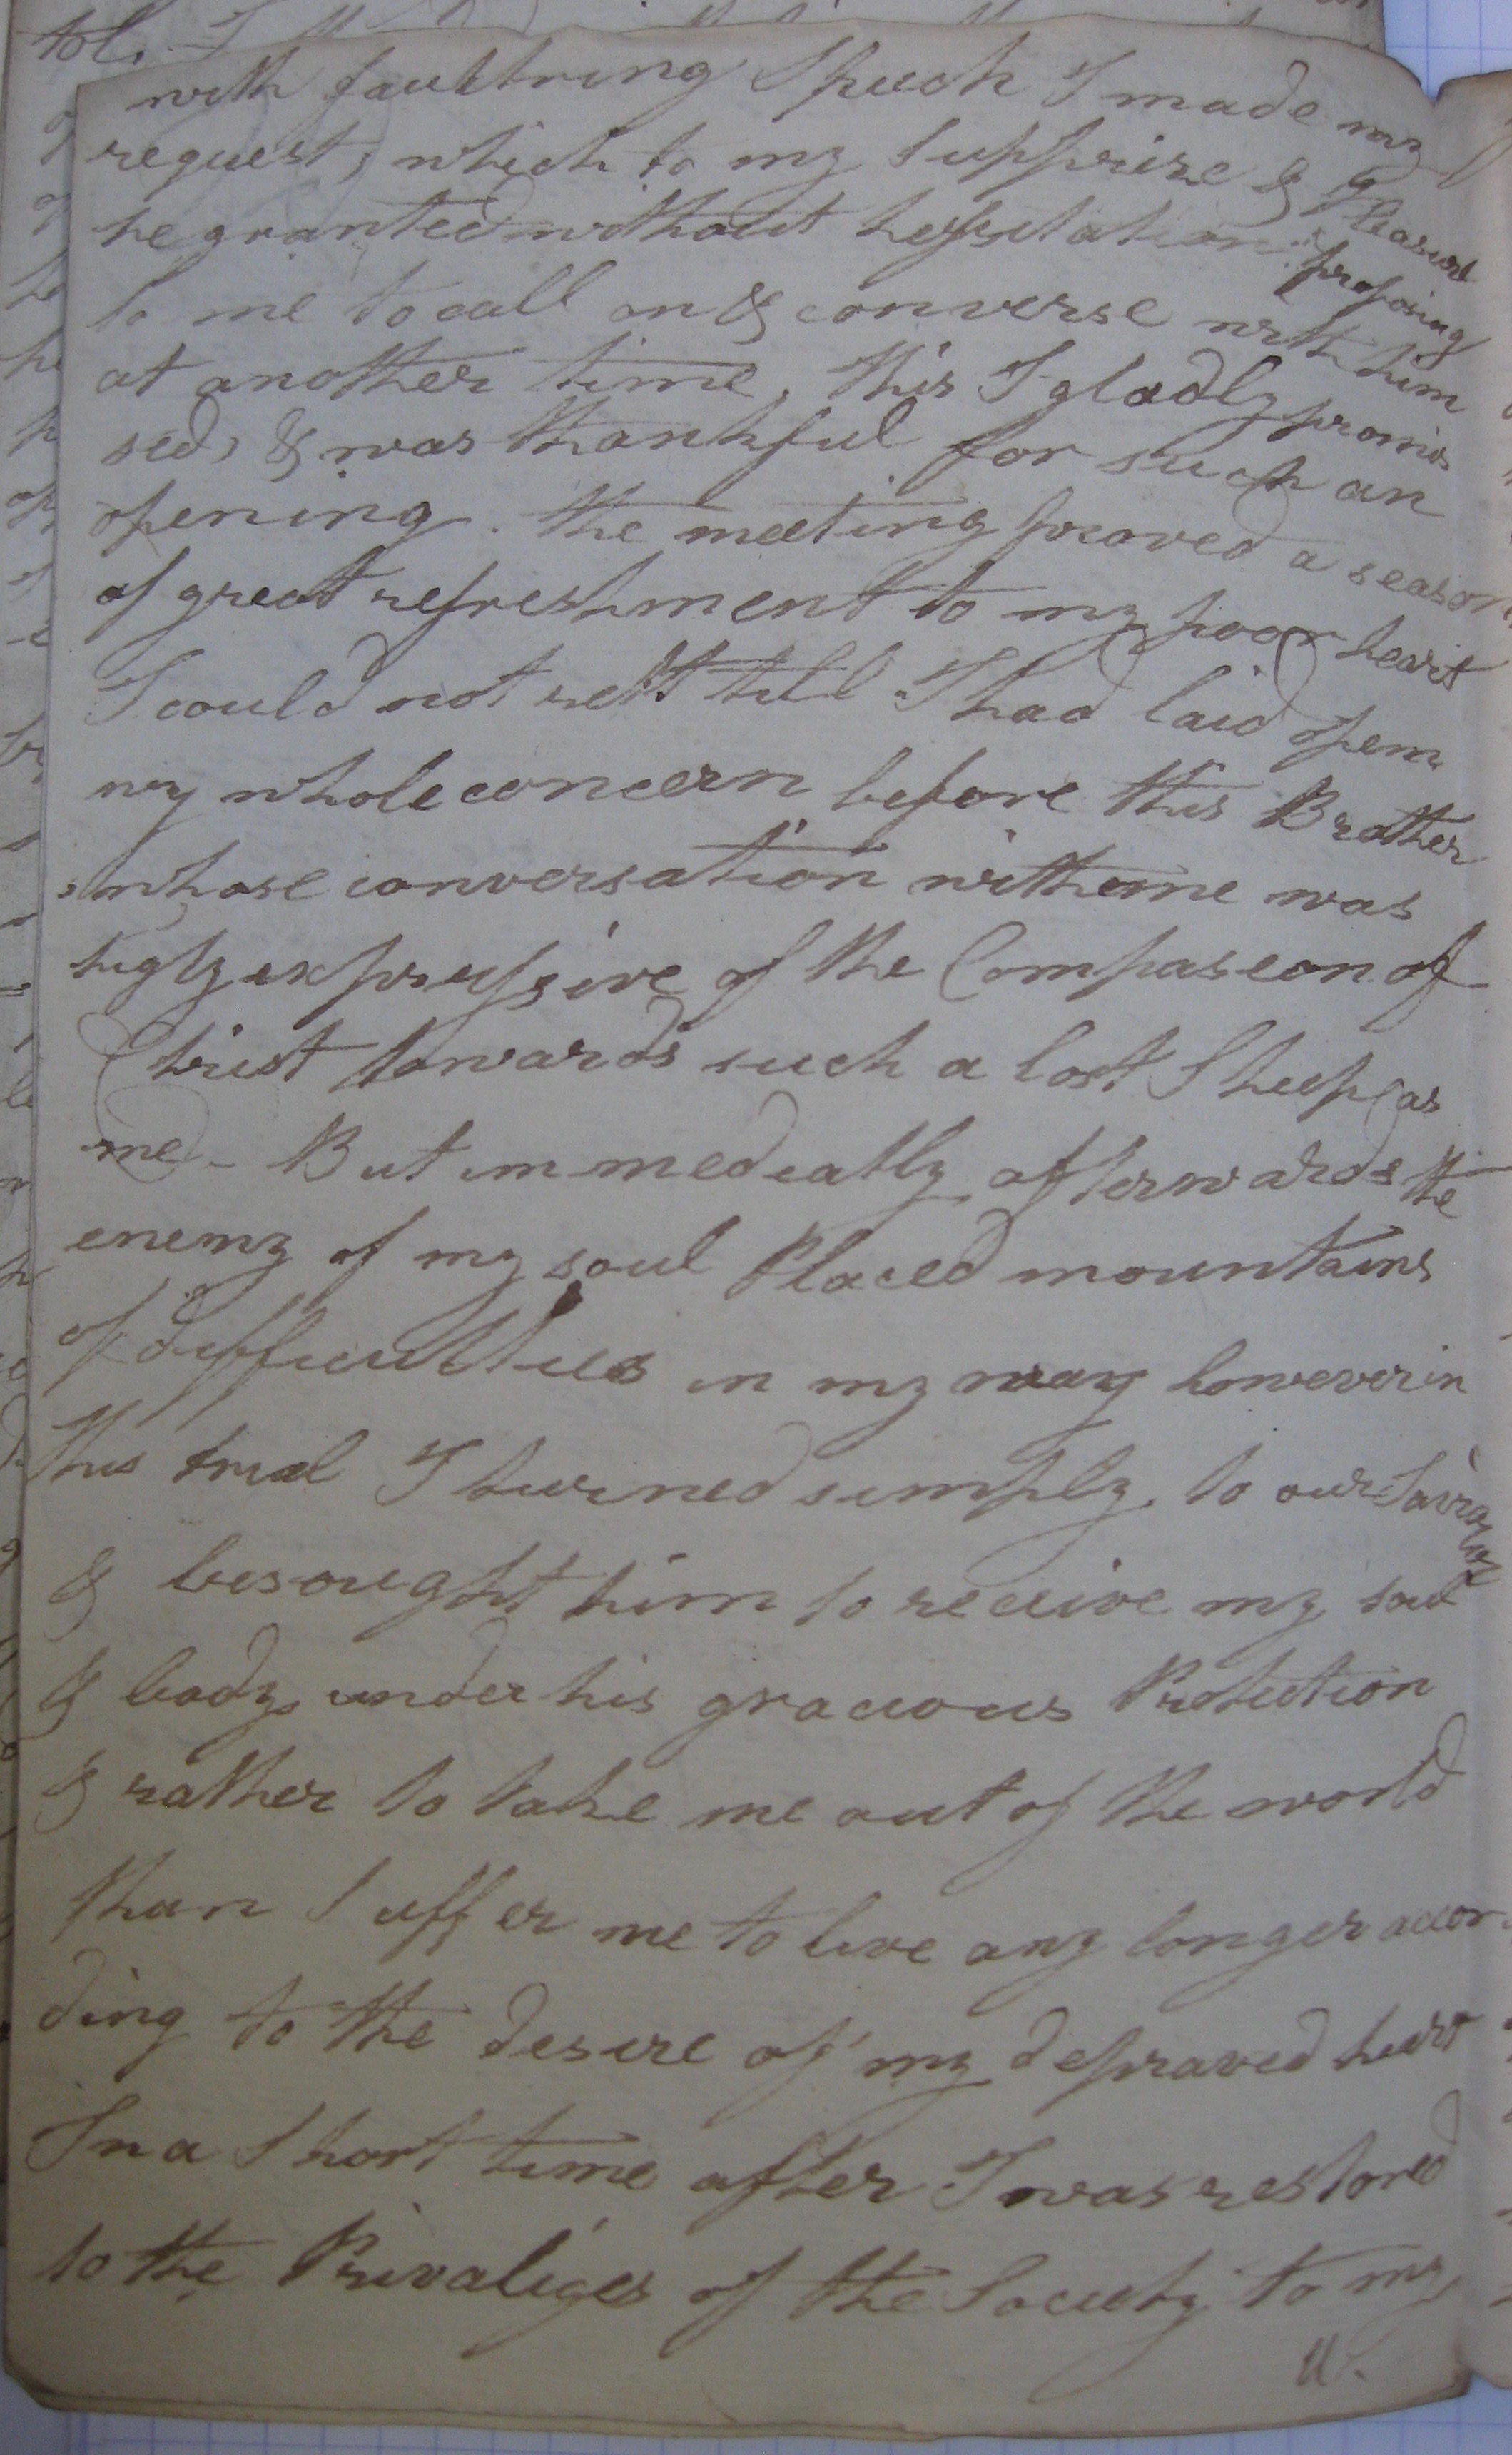 with faultring Speech I made my
request, which to my Supprize & Pleasure
he granted without hessitation proposing
to me to call on & converse with him
at another time, this I gladly promis
sed, & was thankful for such an
opening. The meeting proved a season
of great refreshment to my poor heart
I could not rest till I had laid open
my whole concern before this Brother
whose conversation with me was
higly expressive of the Compaseon of
Christ towards such a lost Sheep as
me - But immedeatly afterwards the
enemy of my soul Placed mountains
of difficulties in my way however in
this trial I turned simply to our Saviour
& besought him to receive my soul
& body under his gracious Protection
& rather to take me out of the world
than Suffer me to live any longer accor
ding to the desire of my depraved heart
In a Short time after I was restored
to the Privaliges of the Society to my